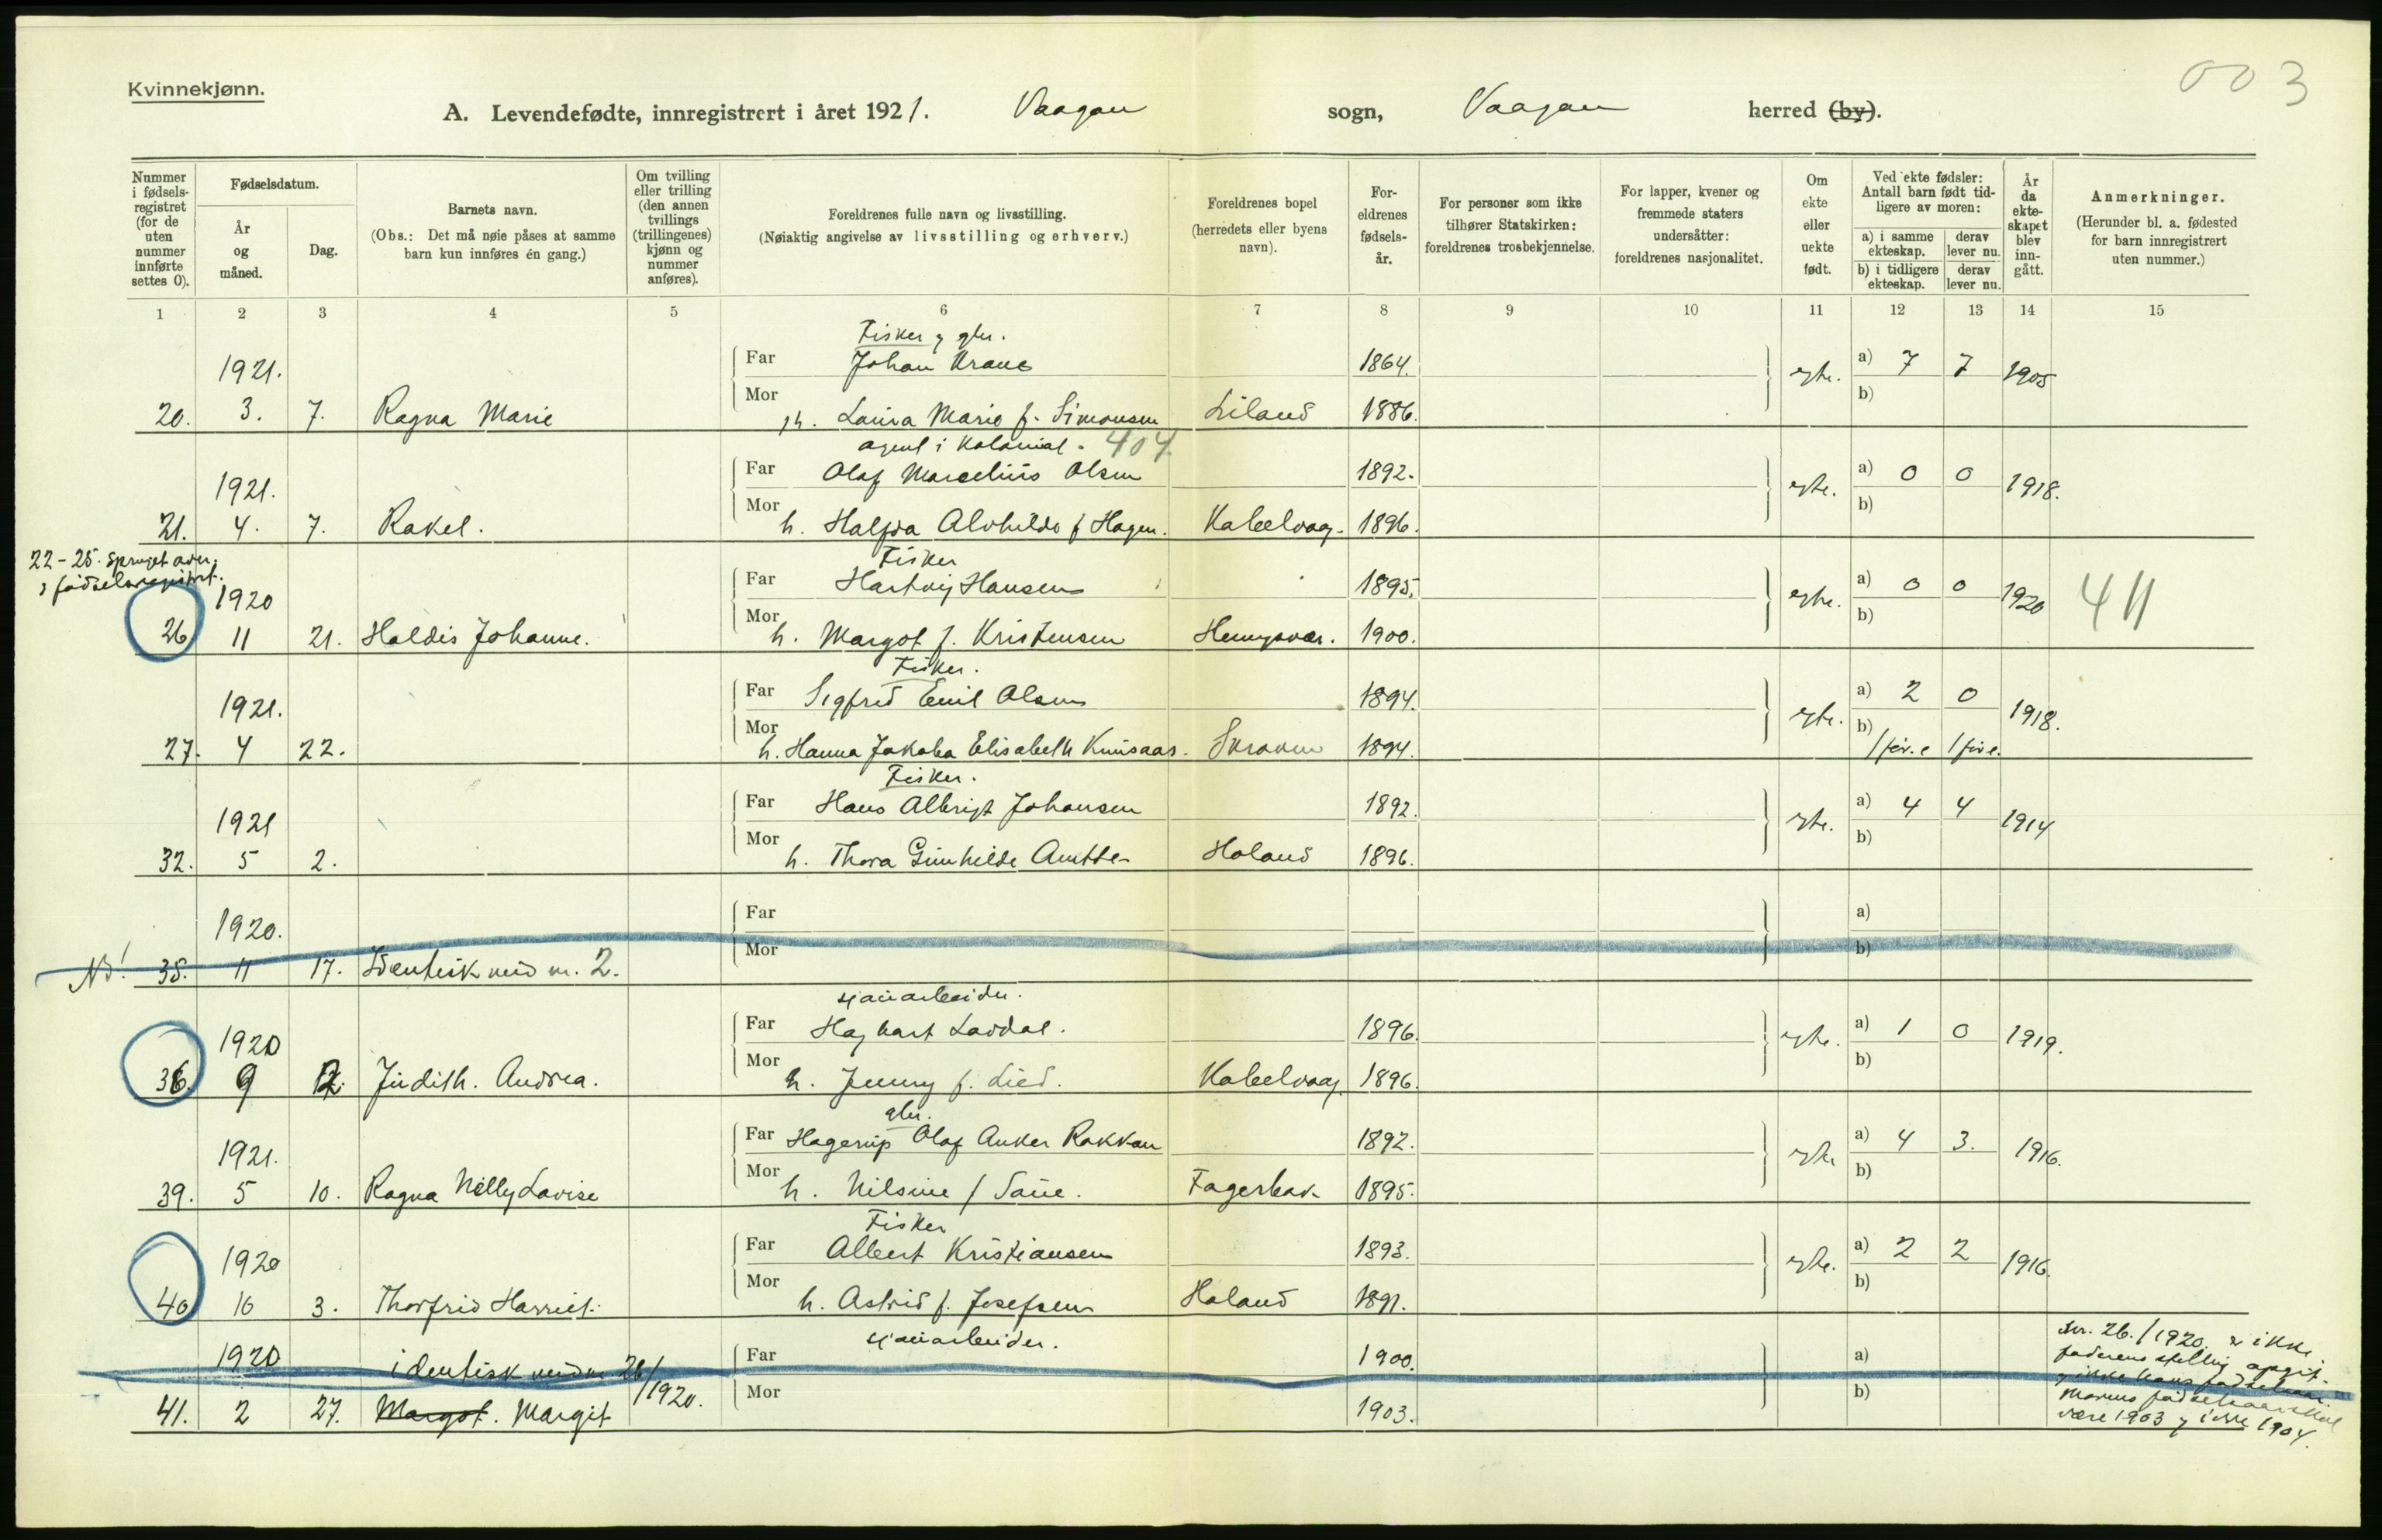 003
Kvinnekjønn.
A. Levendefødte, innregistrert i året 1921. Vaagan sogn, Vaagan herred (by).
Nummer i fødsels-registret (for de uten nummer innførte settes 0).
Fødselsdatum.
År og måned.
Dag.
Barnets navn.
(Obs.: Det må nøie påses at samme barn kun innføres én gang.)
Om tvilling eller trilling (den annen tvillings (trillingenes) kjønn og nummer anføres).
Foreldrenes fulle navn og livsstilling.
(Nøiaktig angivelse av livsstilling og erhverv.)
Foreldrenes bopel
(herredets eller byens navn).
For-eldrenes fødsels-år.
For personer som ikke tilhører Statskirken: foreldrenes trosbekjennelse.
For lapper, kvener og fremmede staters undersåtter: foreldrenes nasjonalitet.
Om ekte eller uekte født.
Ved ekte fødsler: Antall barn født tid-ligere av moren:
a) i samme ekteskap. derav lever nu.
b) i tidligere ekteskap. derav lever nu.
År da ekte-skapet blev inn-gått.
Anmerkninger.
(Herunder bl. a. fødested for barn innregistrert uten nummer.)
1 2 3 4 5 6 7 8 9 10 11 12 13 14 15
Fisker og gbr.
1921. Far Johan Krane 1864. egte. a) 7 7 1905
20. 3. 7. Ragna Marie Mor h. Laura Marie f. Simonsen Liland 1886. b)
agent i Kolonial. 404
1921. Far Olaf Marcelius Olsen 1892. egte. a) 0 0 1918.
21. 4. 7. Rakel. Mor h. Halfda Alvhilde f Hagen. Kabelvaag. 1896. b)
22-25. sprunget over
i fødselsregistret.
Fisker
1920 Far Hartvig Hansen 1895. egte. a) 0 0 1920 411
26 11 21. Haldis Johanne. Mor h. Margot f. Kristensen Henningsvær. 1900. b)
Fisker.
1921. Far Sigfred Emil Olsen 1894. egte. a) 2 0 1918.
27. 4 22. Mor h. Hanna Jakoba Elisabeth Knutsaas. Skroven 1894. b) 1 før. e 1 før e.
Fisker.
1921 Far Hans Albrigt Johansen 1892. egte. a) 4 4 1914
32. 5 2. Mor h. Thora Gunhilde Holand 1896. b)
1920. Far a)
Nb! 35. 11 17. Identisk med nr. 2. Mor b)
sjauarbeider.
1920 Far Hagbart Lavdal. 1896. egte. a) 1 0 1919.
36. 9 12. Judith. Andrea. Mor h. Jenny f. Lied. Kabelvaag 1896. b)
gbr.
1921. Far Hagerup Olaf Anker Rakkan 1892. egte a) 4 3. 1916.
39. 5 10. Ragna Nelly Lovise Mor h. Nilsine f Saue. Fagerbak 1895. b)
Fisker
1920 Far Albert Kristiansen 1893. egte. a) 2 2 1916.
40 10 3. Thorfrid Harriet. Mor h. Astrid f. Josefsen Holand 1891. b)
sjauarbeider.
1920 identisk med nr 26/1920. Far 1900. a)
41. 2 27. Margot. Margit Mor 1903. b)
nr. 26./1920, er ikke
faderens stilling opgit.
og ikke hans fødselsaar.
Morens fødselsaar skal
være 1903 og ikke 1904.